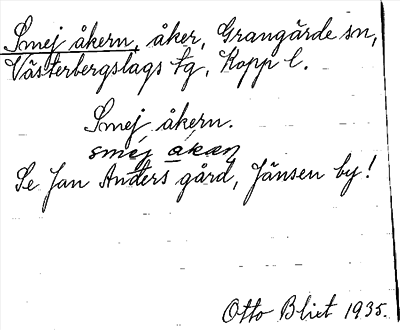 Smej åkern, åker, Grangärde sn,
Västerbergslags tg, Kopp l.
Smej åkern.
smej åkaṇ
Se Jan Anders gård, Jänsen by!
Otto Blixt 1935.